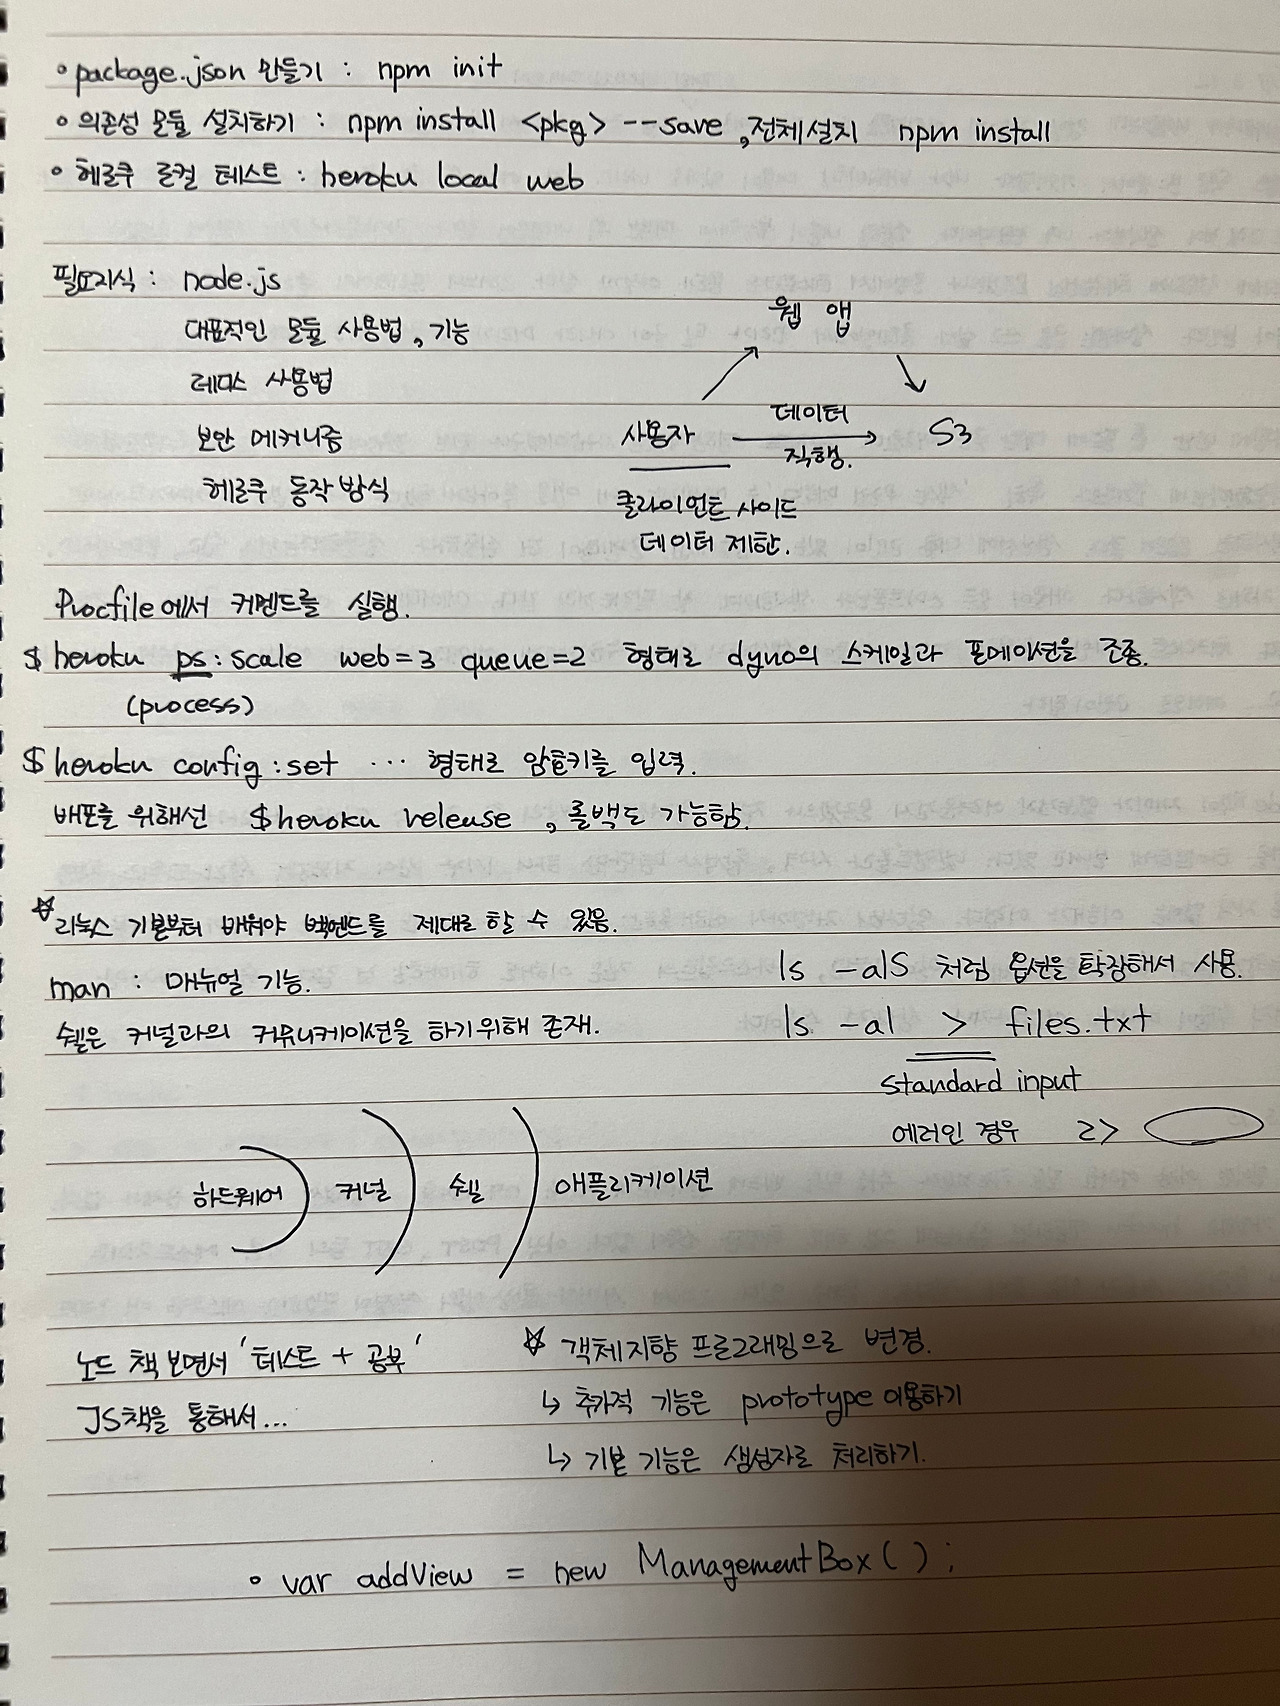 ◦ package.json 만들기 : npm init
◦ 의존성 모듈 설치하기 : npm install <pkg> --save , 전체설치 npm install
◦ 헤로쿠 로컬 테스트 : heroku local web
필요지식 : node.js
대표적인 모듈 사용법, 기능
레디스 사용법
보안 메커니즘
헤로쿠 동작 방식
웹 앱
사용자
데이터
직행.
S3
클라이언트 사이드
데이터 제한.
Procfile에서 커멘드를 실행.
$ heroku ps:scale web=3 queue=2 형태로 dyno의 스케일과 포메이션을 조종.
(process)
$ heroku config:set ... 형태로 암호키를 입력.
배포를 위해선 $heroku release , 롤백도 가능함.
☆ 리눅스 기본부터 배워야 백엔드를 제대로 할 수 있음.
man : 매뉴얼 기능.
쉘은 커널과의 커뮤니케이션을 하기위해 존재.
ls -alS 처럼 옵션을 확장해서 사용.
ls -al > files.txt
standard input
에러인 경우 2>
하드웨어 커널 쉘 애플리케이션
노드 책 보면서 '테스트 + 공부'
JS책을 통해서...
☆ 객체지향 프로그래밍으로 변경.
↳ 추가적 기능은 prototype 이용하기
↳ 기본 기능은 생성자로 처리하기.
◦ var addView = new ManagementBox( );